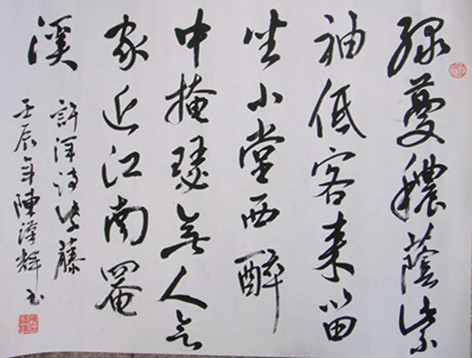 綠蔓穠蔭紫
袖低客来留
坐小堂西醉
中掩瑟无人会
家近江南罨
溪
許渾詩紫藤
壬辰年陳澤輝书